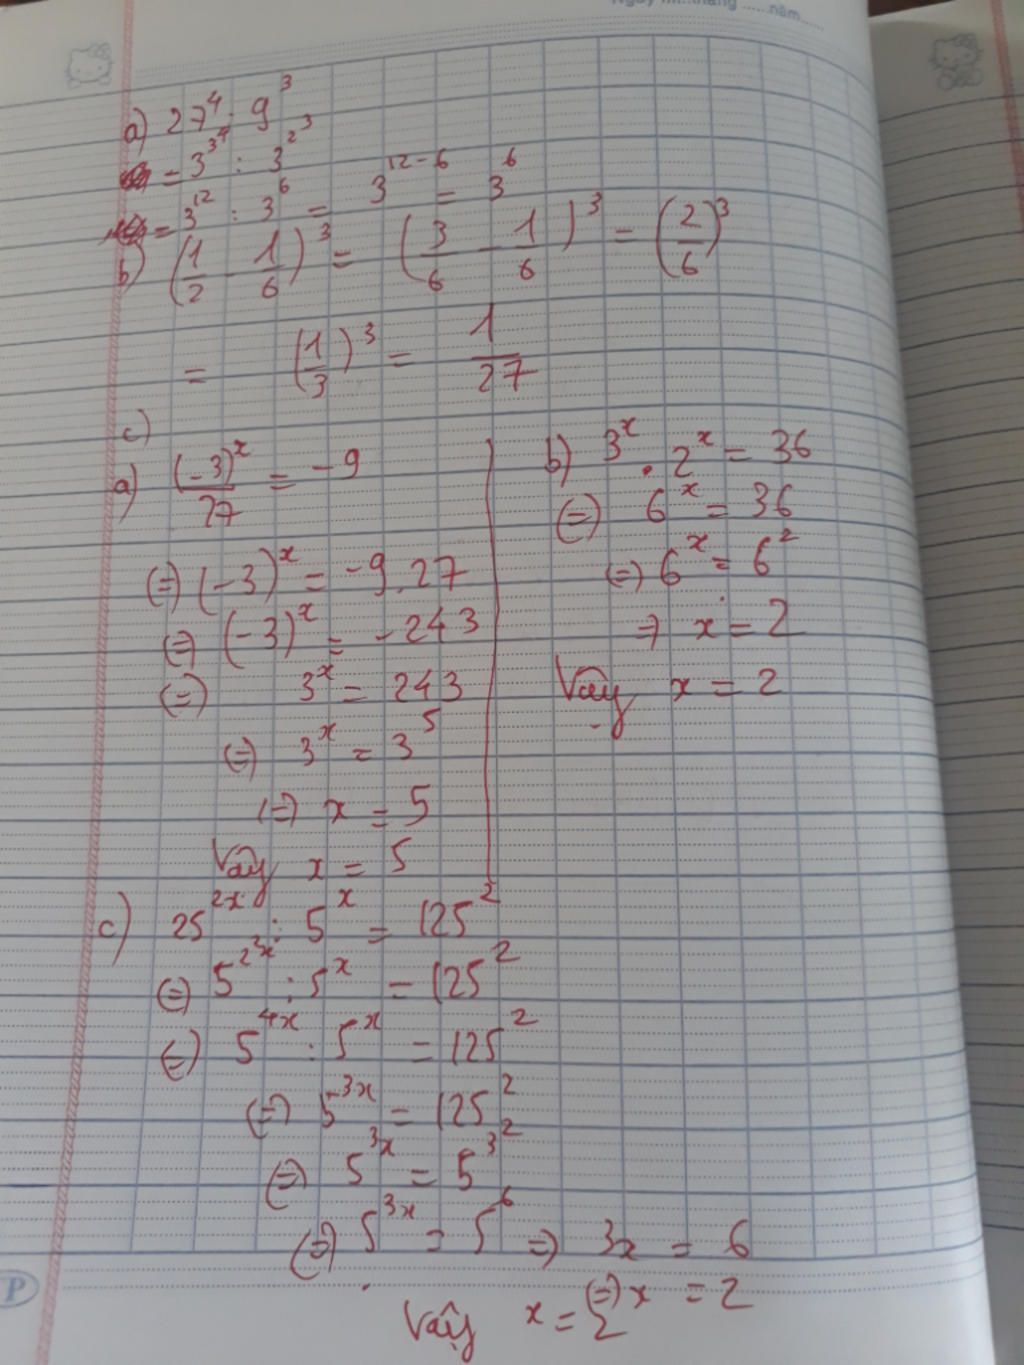 Ngày ......tháng ......năm......
a) 27⁴ : 9³
= 3^{3^4} : 3^{2^3}
= 3¹² : 3⁶ = 3^{12-6} = 3⁶
b) (1/2 - 1/6)³ = (3/6 - 1/6)³ = (2/6)³
= (1/3)³ = 1/27
c)
a) (-3)^x/27 = -9
(=) (-3)^x = -9.27
(=) (-3)^x = -243
(=) 3^x = 243
(=) 3^x = 3⁵
(=) x = 5
Vậy x = 5
b) 3^x . 2^x = 36
(=) 6^x = 36
(=) 6^x = 6²
=) x = 2
Vậy x = 2
c) 25^{2x} : 5^x = 125²
(=) 5^{2^{3x}} : 5^x = 125²
(=) 5^{4x} : 5^x = 125²
(=) 5^{3x} = 125²
(=) 5^{3x} = 5^{3^2}
(=) 5^{3x} = 5⁶ =) 3x = 6
(=) x = 2
Vậy x = 2
P